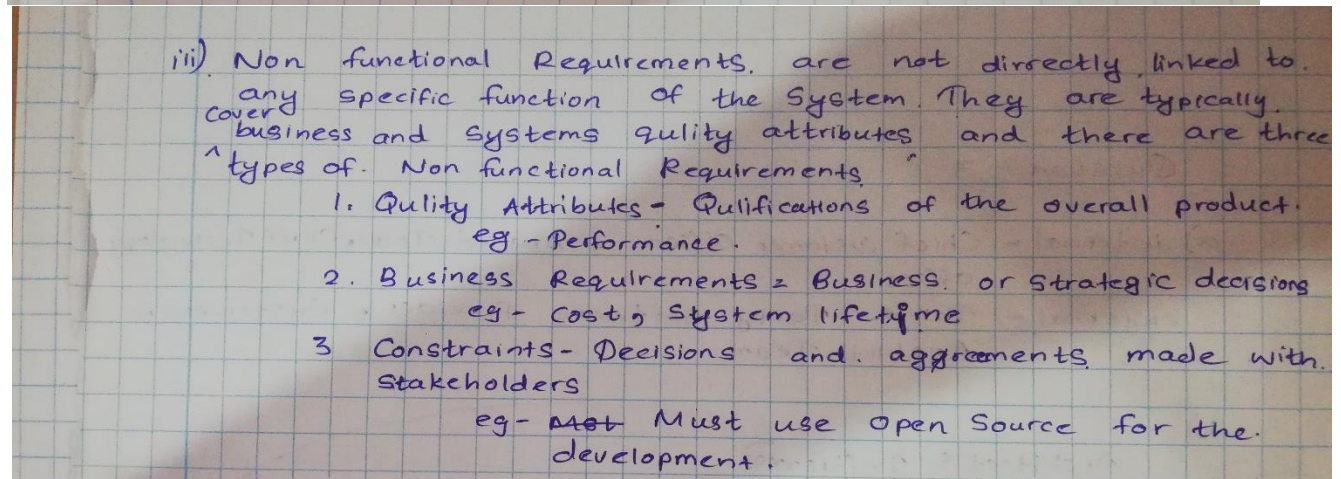 iii) Non functional Requirements. are not dirrectly linked to.
any specific function of the System. They are typically.
cover
business and Systems qulity attributes and there are three
^ types of. Non functional Requirements.
1. Qulity Attributes - Qulifications of the overall product.
eg - Performance.
2. Business Requirements = Business. or Strategic decisions
eg - Cost, System lifetime
3 Constraints - Decisions and. aggreements made with.
Stakeholders
eg - Must use Open Source for the.
development.